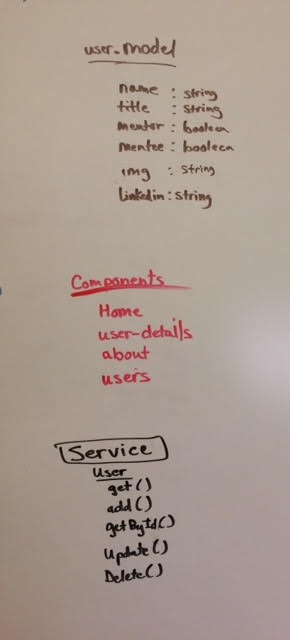 user.model
name : string
title : String
mentor : boolean
mentee : boolean
img : String
linkedin : string
Components
Home
user-details
about
users
Service
User
get()
add()
getById()
Update()
Delete()